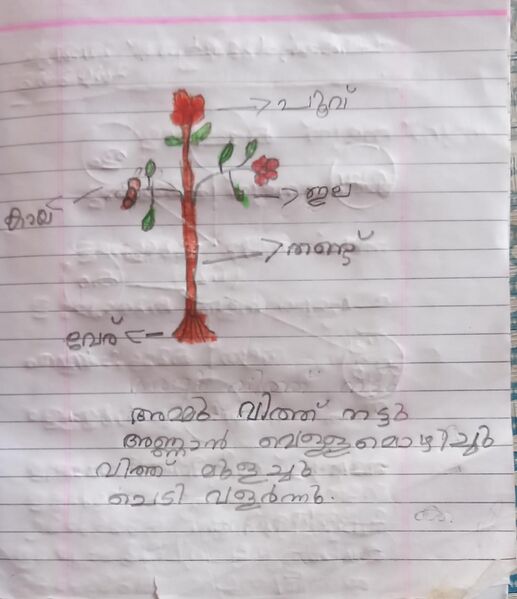 പൂവ്
ഇല
കായ
തണ്ട്
വേര്
അമ്മു വിത്ത് നട്ടു
അണ്ണാൻ വെള്ളമൊഴിച്ചു
വിത്ത് മുളച്ചു
ചെടി വളർന്നു.